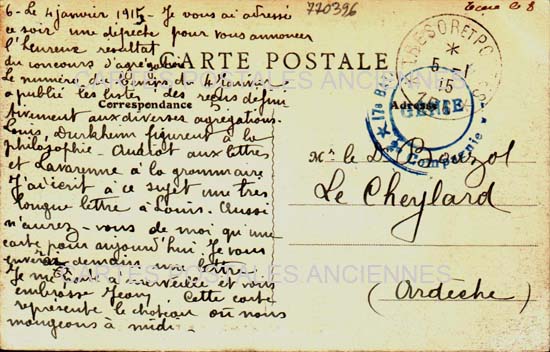 6- Le 4 janvier 1915- Je vous ai adressé
ce soir une dépêche pour vous annoncer
l'heureux résultat
du concours d'agrégation
Le numéro du Temps du 4 Janvier
a publié les listes des reçus défini
tivement aux diverses agrégations.
Louis, Durkheim figurent à la
philosophie- aux lettres
et Lavarenne à la grammaire
J'ai écrit à ce sujet une très
longue lettre à Louis. Aussi
n'aurez-vous de moi qu'une
carte pour aujourd'hui Je vous
enverrai demain une lettre
Je à merveille et vous
embrasse Jean, Cette carte
représente le château où nous
mangeons à midi.
770396
CARTE POSTALE
Correspondance
Adresse
TRESOR ET POSTES
*
5-1
15
GENIE
Compagnie
Mr le Dr
Le Cheylard
(Ardèche)
CARTES POSTALES ANCIENNES
CARTES POSTALES ANCIENNES